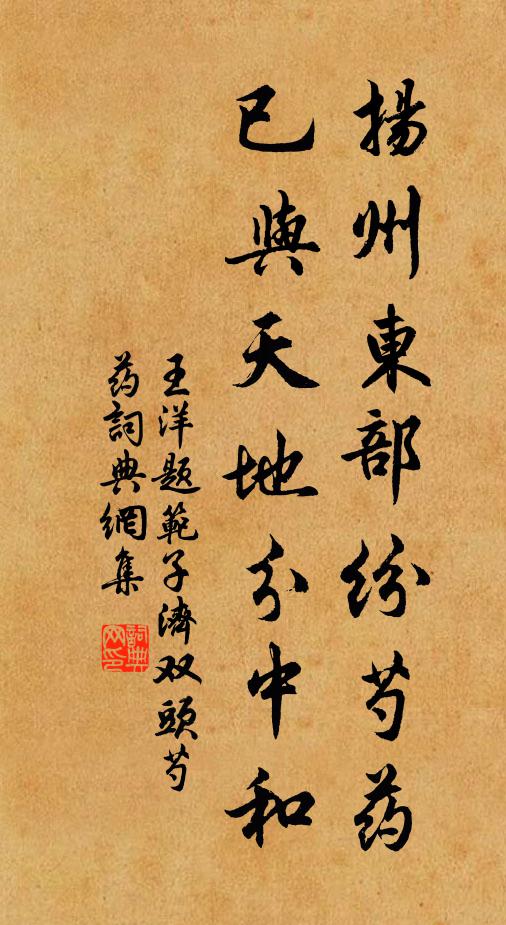 揚州東部紛芍药
已與天地分中和
王洋題範子濟双頭芍
药詞典網集
詞典
网印